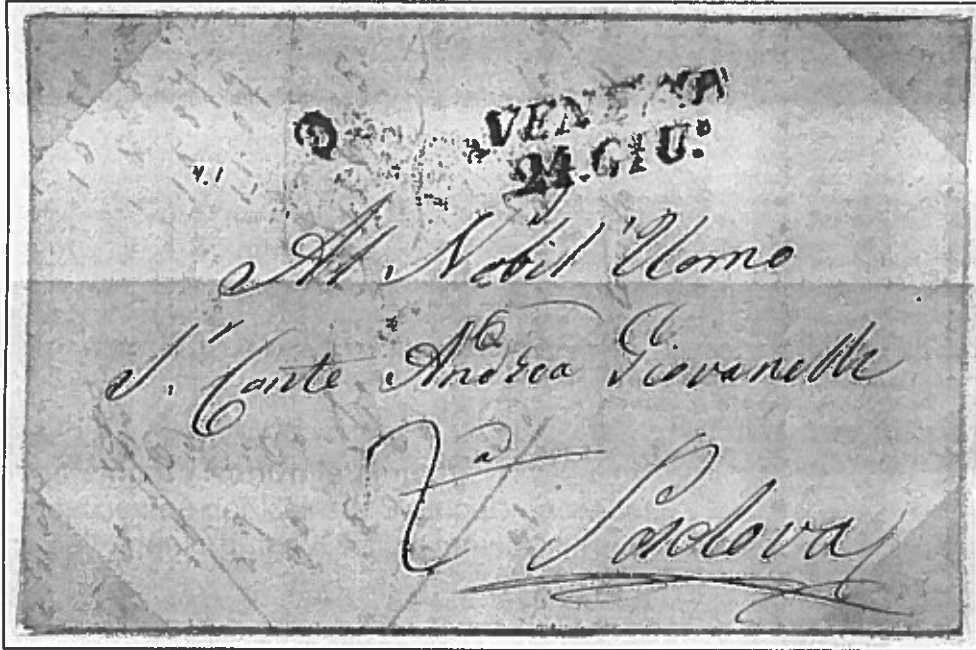 VENEZIA
24. GIU.º
Al Nobil Uomo
S.r Conte Andrea Giovanelli
Padova